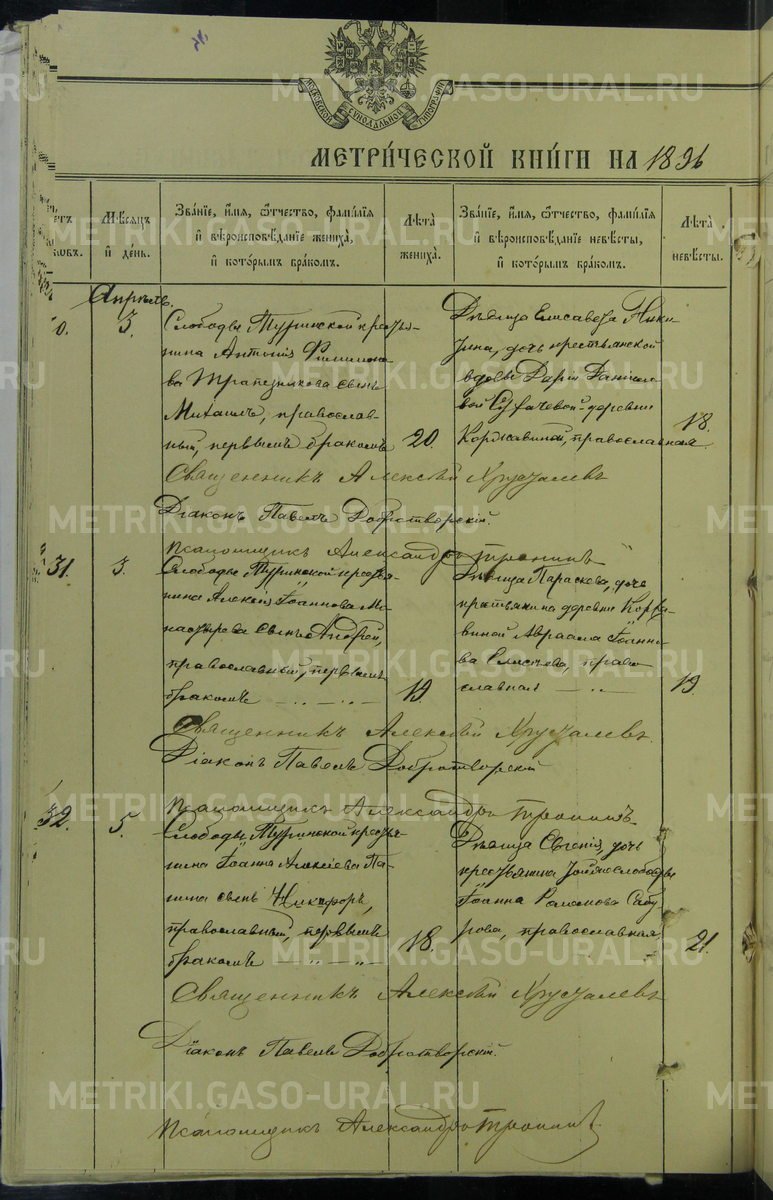 МЕТРИ́ЧЕСКОЙ КНИ́ГИ НА 1896
МѢСѧЦЪ
И҆ ДЕ́НЬ.
ЗВА́НІЕ, И҆́Мѧ, Ѿ́ТЧЕСТВО, ФАМИ́ЛІѧ
И҆ ВѢРОИСПОВѢ́ДАНІЕ ЖЕНИХА̀,
И҆ КОТО́РЫМЪ БРА́КОМЪ.
ЛѢ́ТА
ЖЕНИХА̀.
ЗВА́НІЕ, И҆́Мѧ, Ѿ́ТЧЕСТВО, ФАМИ́ЛІѧ
И҆ ВѢРОИСПОВѢ́ДАНІЕ НЕВѢ́СТЫ,
И҆ КОТО́РЫМЪ БРА́КОМЪ.
ЛѢ́ТА
НЕВѢ́СТЫ.
Апрель.
3.
Слободы Туринской кресть-
янина Антонія Филимоно-
ва Трапезникова сынъ
Михаилъ, православ-
ный, первымъ бракомъ
20.
Дѣвица Елисавета Ники-
тина, дочь крестьянской
вдовы Даріи
деревни
православная
18.
Священникъ Алексѣй Хрусталевъ
Діаконъ Павелъ Добротворскій.
Псаломщикъ Александръ Тронинъ
31.
3.
Слободы Туринской кресть-
янина Алексія Іоаннова Мо-
настырева сынъ Андрей,
православный, первымъ
бракомъ
19.
Дѣвица Параскева, дочь
крестьянина деревни
Авраама Іоанно-
ва право-
славная
19
Священникъ Алексѣй Хрусталевъ.
Діаконъ Павелъ Добротворскій
Псаломщикъ Александръ Тронинъ
32.
5.
Слободы Туринской кресть-
янина Іоанна Алексіева Па-
нина сынъ Никифоръ,
православный, первымъ
бракомъ
18.
Дѣвица Евгенія, дочь
крестьянина слободы
Іоанна Романова
православная
21.
Священникъ Алексѣй Хрусталевъ
Діаконъ Павелъ Добротворскій.
Псаломщикъ Александръ Тронинъ
METRIKI.GASO-URAL.RU